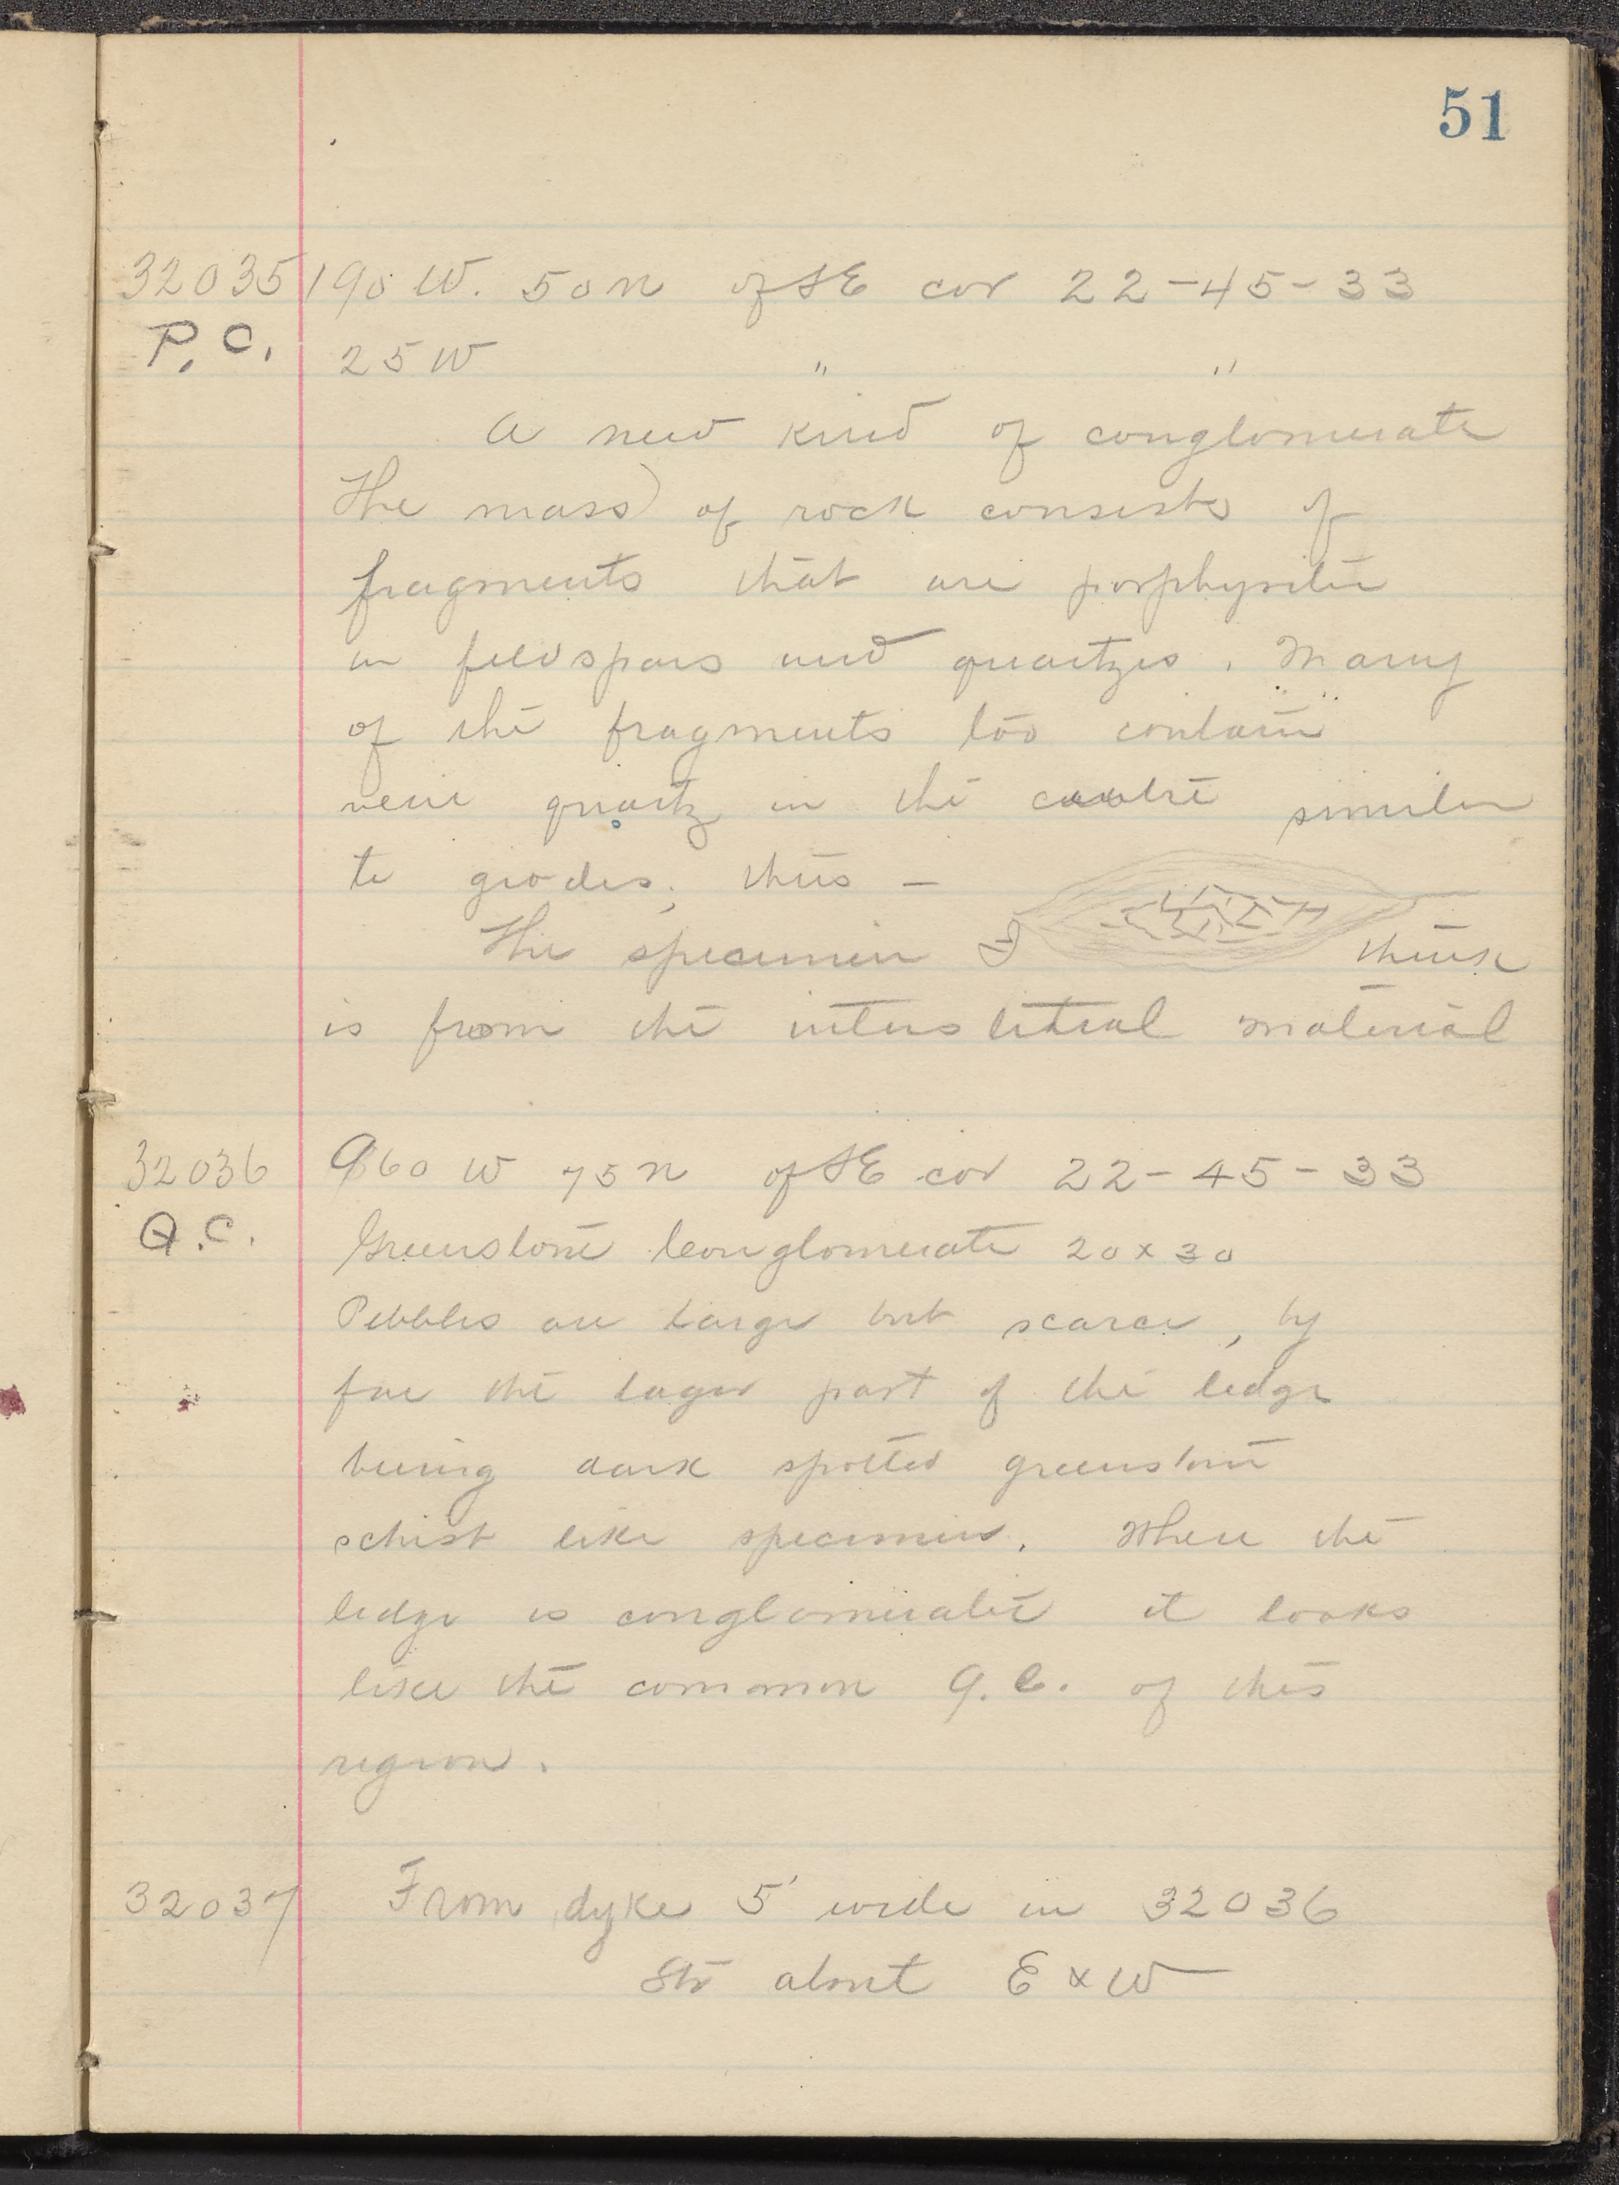 51
32035 190 W. 50 N of SE cor 22-45-33
P.C. 25 W " "
A new kind of conglomerate
The mass of rock consists of
fragments that are porphyritic
in feldspars and quartzes. Many
of the fragments too contain
vein quartz in the centre similar
to geodes; thus -
The specimen I think
is from the interstitial material
32036 960 W 75 N of SE cor 22-45-33
G.C. Greenstone Conglomerate 20 x 30
Pebbles are large but scarce, by
far the larger part of the ledge
being dark spotted greenstone
schist like specimen. Where the
ledge is conglomeratic it looks
like the common G.C. of this
region.
32037 From dyke 5' wide in 32036
Str about E & W